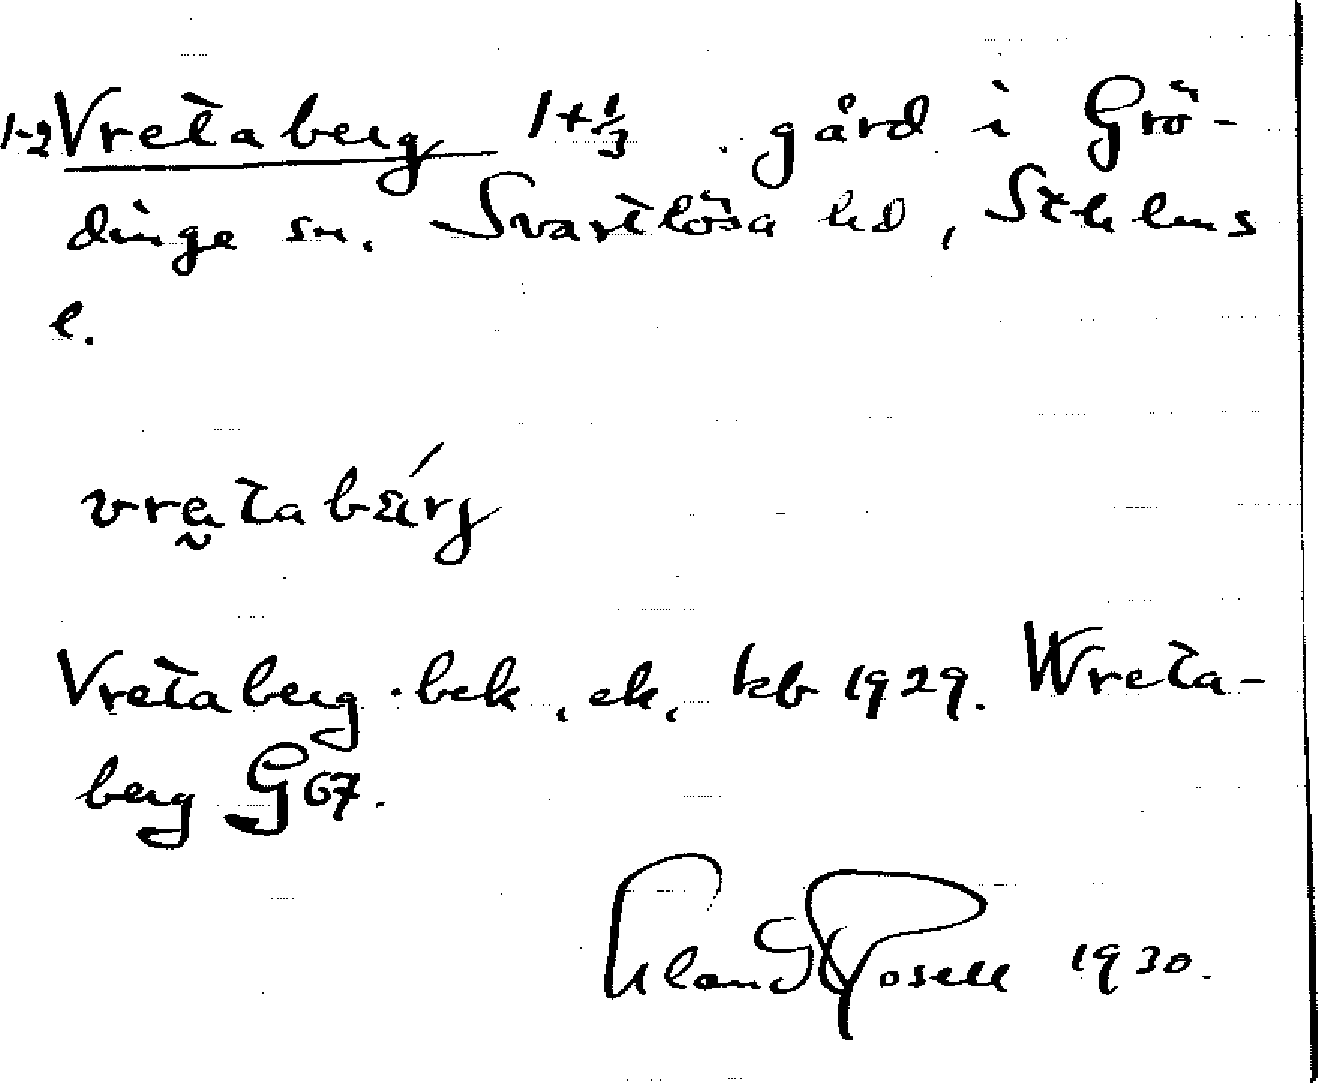 1-2 Vretaberg 1+1/3 gård i Grö-
dinge sn. Svartlösa hd, Sthlms
l.
vretabärg
Vretaberg bek, ek, kb 1929. Wreta-
berg G 67.
Erland Rosell 1930.